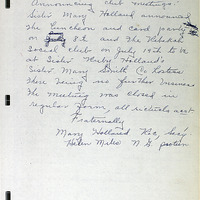 Announcing club meetings.
Sister Mary Holland announced
the Luncheon and card party
on 8th and the Rebekah
Social club on July 19th to be
at Sister Ruby Holland's
Sister Mary Smith Co Hostess
There being no further business
the meeting was closed in
regular form, all
Fraternally
Mary Holland Rec, Sec'y
Helen N. G. protem